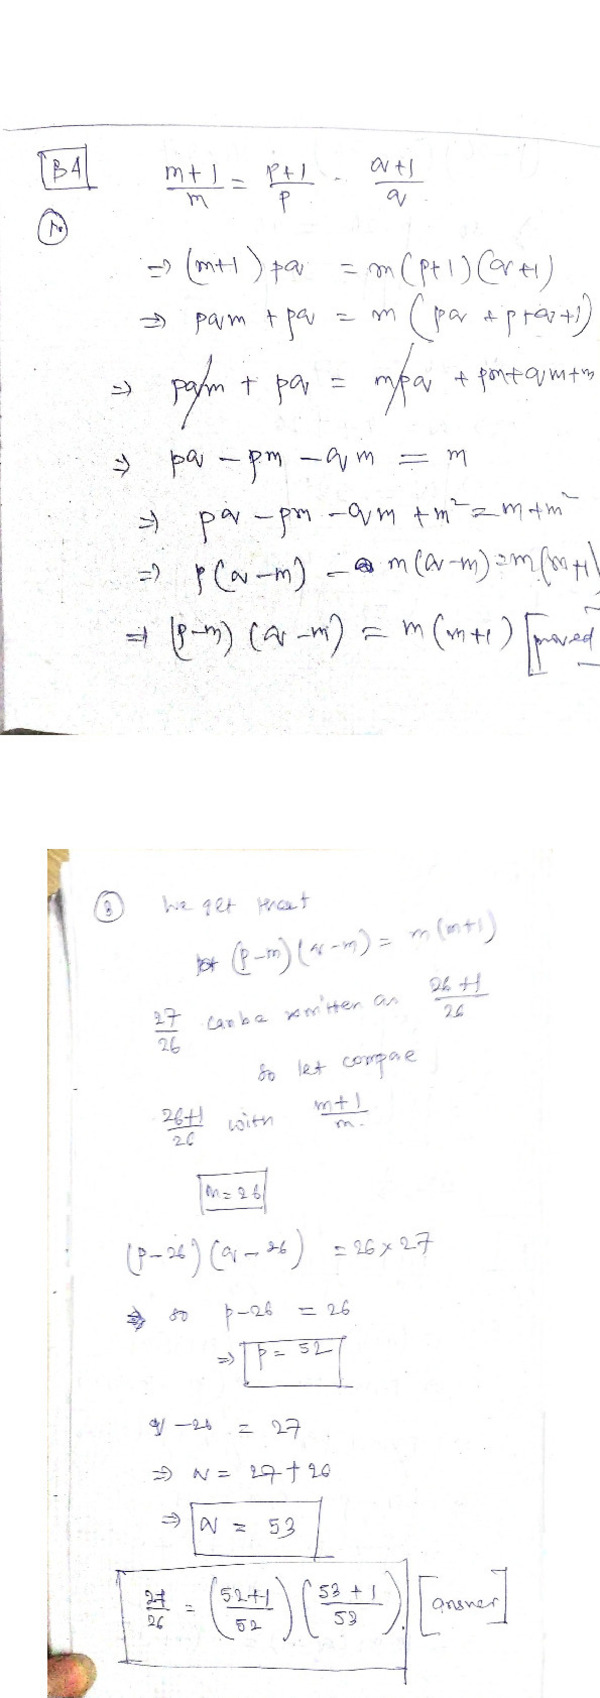 B4
m+1/m = p+1/p · q+1/q
1.
⇒ (m+1) pq = m(p+1)(q+1)
⇒ pqm + pq = m (pq + p+q+1)
⇒ pqm + pq = mpq + pm+qm+m
⇒ pq - pm - qm = m
⇒ pq - pm - qm + m² = m+m²
⇒ p(q-m) - m(q-m) = m(m+1)
⇒ (p-m)(q-m) = m(m+1) [proved]
3 We get that
(p-m)(q-m) = m(m+1)
27/26 can be written as 26+1/26
so let compae
26+1/26 with m+1/m.
m = 26
(p-26)(q-26) = 26×27
⇒ so p-26 = 26
⇒ p = 52
q-26 = 27
⇒ q = 27+26
⇒ q = 53
27/26 = (52+1/52) (53+1/53) [answer]